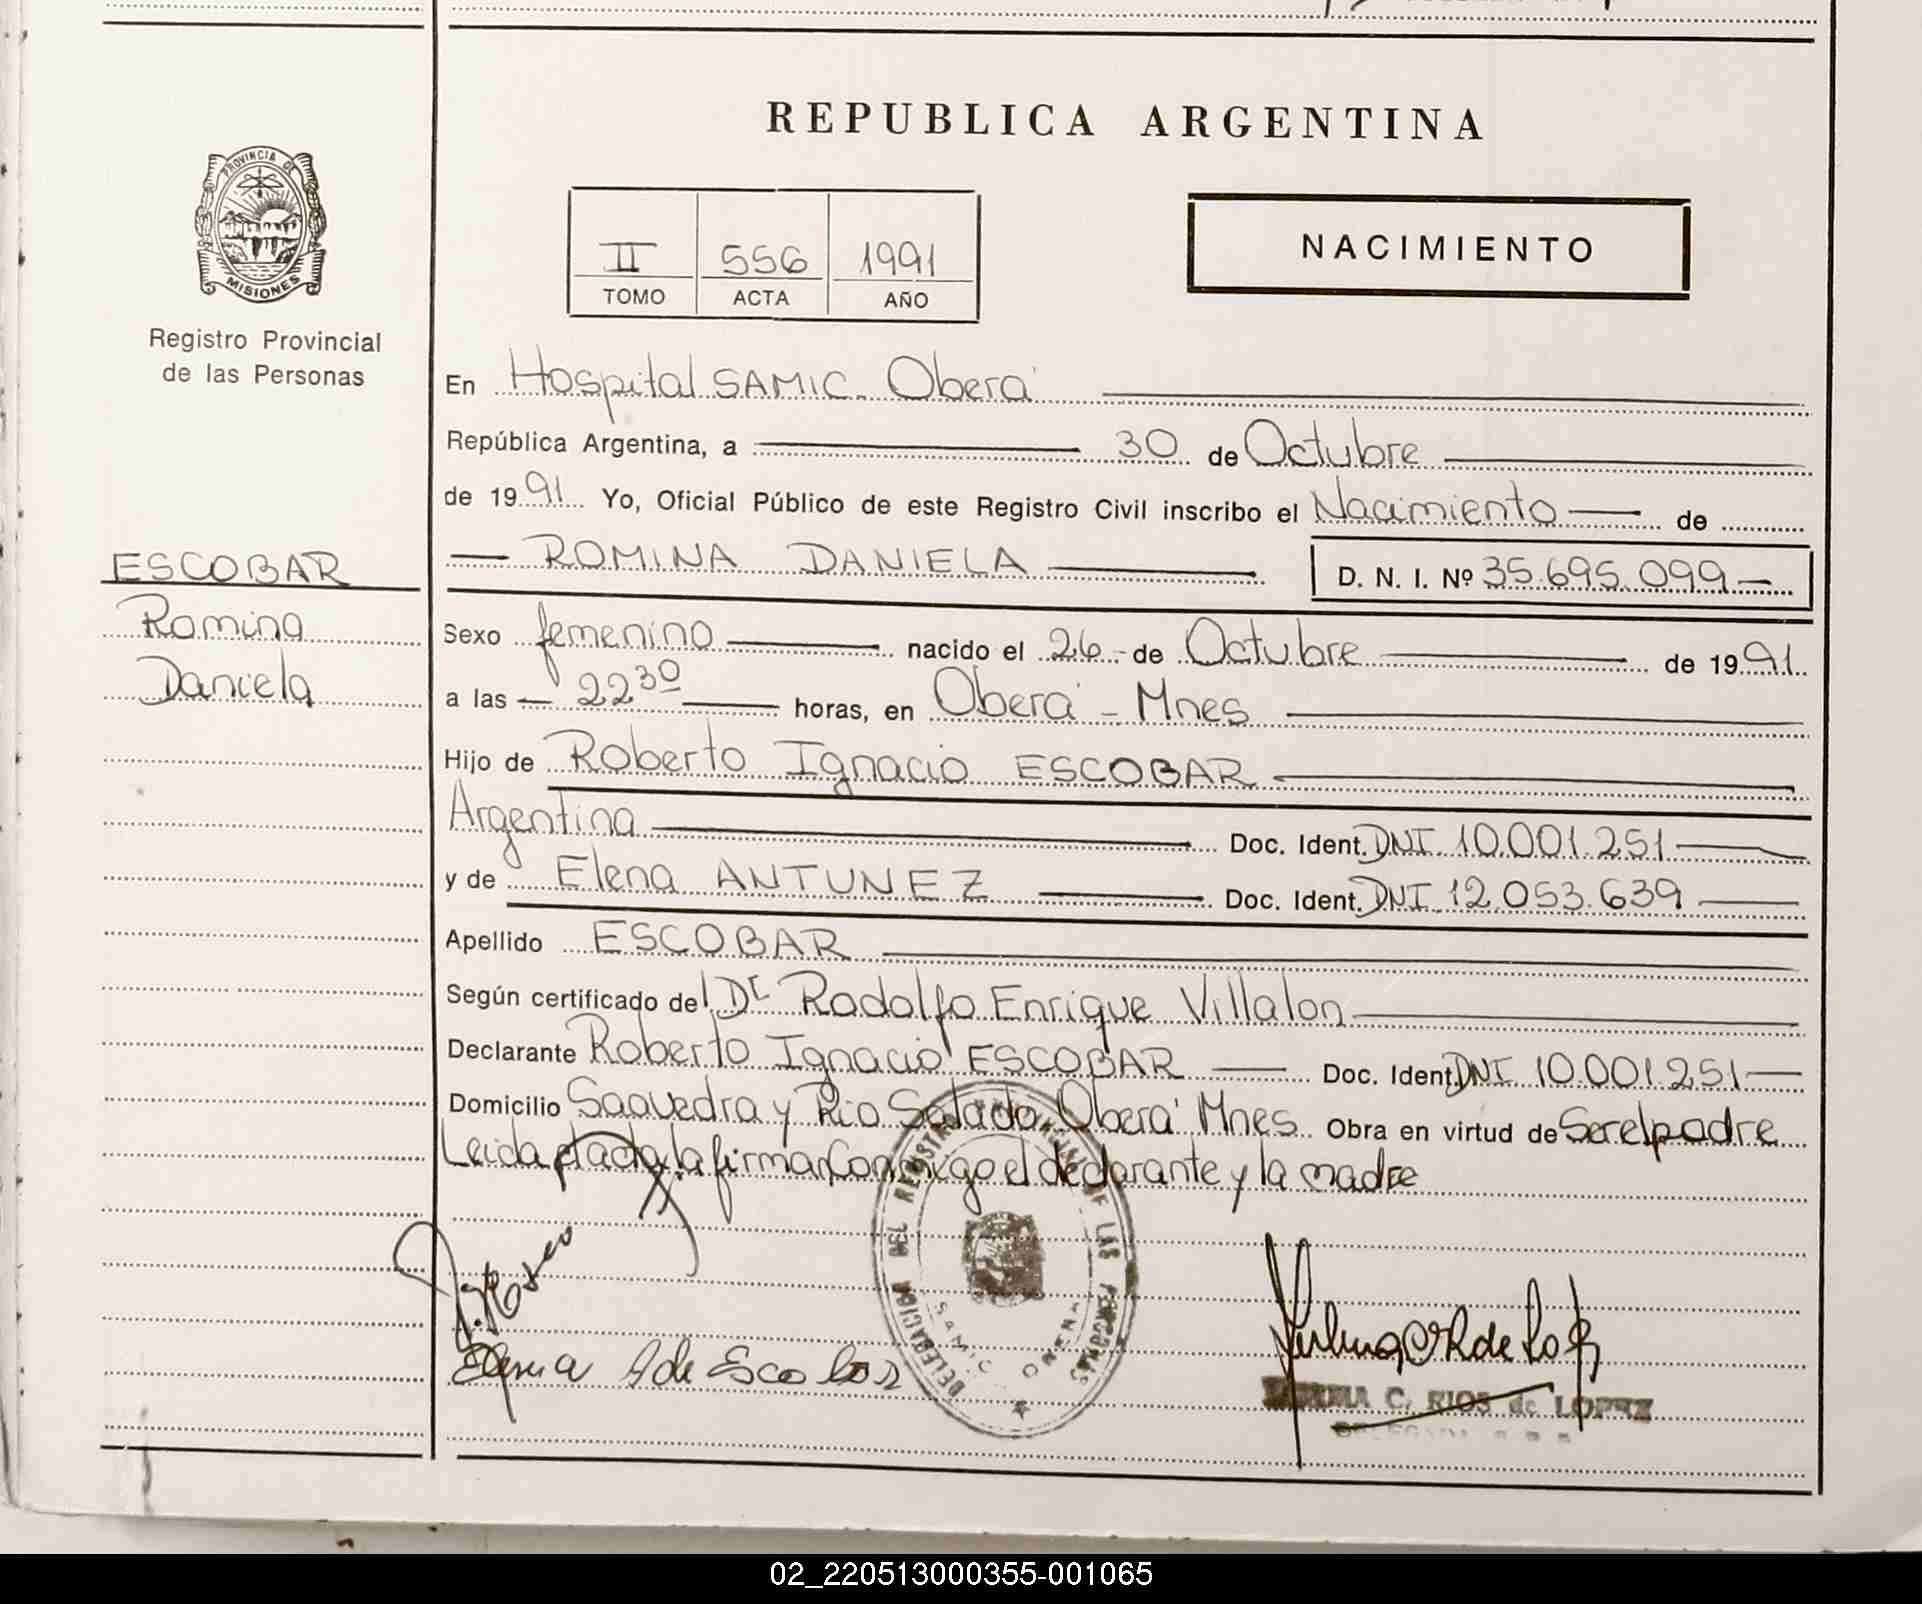 REPUBLICA ARGENTINA
PROVINCIA DE
MISIONES
Registro Provincial
de las Personas
II 556 1991
TOMO ACTA AÑO
NACIMIENTO
ESCOBAR
Romina
Daniela
En Hospital SAMIC. Oberá
República Argentina, a 30 de Octubre
de 1991 Yo, Oficial Público de este Registro Civil inscribo el Nacimiento de
ROMINA DANIELA D. N. I. Nº 35.695.099
Sexo femenino nacido el 26 de Octubre de 1991.
a las 22 30 horas, en Oberá - Mnes
Hijo de Roberto Ignacio ESCOBAR
Argentina Doc. Ident. DNI 10.001.251
y de Elena ANTUNEZ Doc. Ident. DNI 12.053.639
Apellido ESCOBAR
Según certificado del Dr Rodolfo Enrique Villalon
Declarante Roberto Ignacio ESCOBAR Doc. Ident. DNI 10.001.251
Domicilio Saavedra y Rio Salado Oberá Mnes Obra en virtud de Ser el padre
Leida el acta, la firman Conmigo el declarante y la madre
DELEGACION DEL REGISTRO PROVINCIAL DE LAS PERSONAS
SAMIC OBERA
Elena A de Escobar
C. RIOS de LOPEZ
02_220513000355-001065